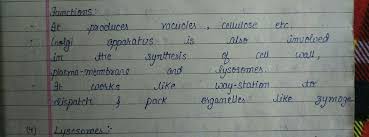 Functions:
It produces vacuoles, cellulose etc.
Golgi apparatus is also involved
in the synthesis of cell wall,
plasma-membrane and lysosomes.
It works like way-station to
dispatch & pack organelles like zymoge
(4) Lysosomes:-